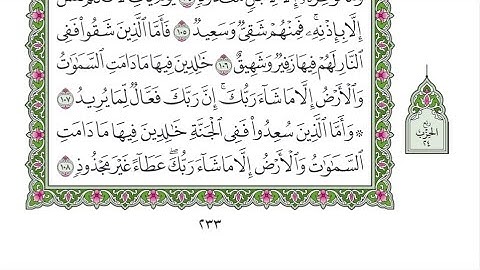 إِلَّا بِإِذْنِهِۦۚ فَمِنْهُمْ شَقِىٌّ وَسَعِيدٌ ١٠٥ فَأَمَّا ٱلَّذِينَ شَقُوا۟ فَفِى
ٱلنَّارِ لَهُمْ فِيهَا زَفِيرٌ وَشَهِيقٌ ١٠٦ خَٰلِدِينَ فِيهَا مَا دَامَتِ ٱلسَّمَٰوَٰتُ
وَٱلْأَرْضُ إِلَّا مَا شَآءَ رَبُّكَۚ إِنَّ رَبَّكَ فَعَّالٌ لِّمَا يُرِيدُ ١٠٧
۞ وَأَمَّا ٱلَّذِينَ سُعِدُوا۟ فَفِى ٱلْجَنَّةِ خَٰلِدِينَ فِيهَا مَا دَامَتِ
ٱلسَّمَٰوَٰتُ وَٱلْأَرْضُ إِلَّا مَا شَآءَ رَبُّكَۖ عَطَآءً غَيْرَ مَجْذُوذٍ ١٠٨
ربع
الحزب
٢٤
٢٣٣